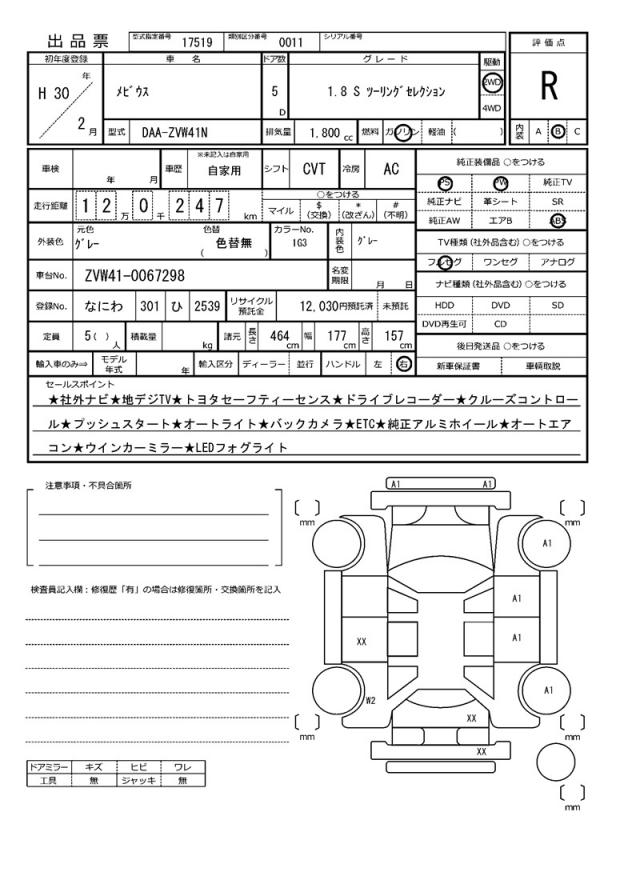 出品票
型式指定番号 17519 類別区分番号 0011 シリアル番号
初年度登録 車名 ドア数 グレード 駆動 評価点
H 30 年 2 月
メビウス 5 D 1.8 S ツーリングセレクション 2WD 4WD R
型式 DAA-ZVW41N 排気量 1.800 cc 燃料 ガソリン 軽油 ( ) 内装 A B C
車検 年 月 車歴 ※未記入は自家用 自家用 シフト CVT 冷房 AC 純正装備品 ○をつける
PS PW 純正TV
走行距離 1 2 万 0 千 2 4 7 km ○をつける マイル $ (交換) * (改ざん) # (不明)
純正ナビ 革シート SR
純正AW エアB ABS
外装色 元色 グレー 色替 ( 色替無 ) カラーNo. 1G3 内装色 グレー
TV種類 (社外品含む) ○をつける
フルセグ ワンセグ アナログ
車台No. ZVW41-0067298 名変期限 月 日
ナビ種類 (社外品含む) ○をつける
登録No. なにわ 301 ひ 2539 リサイクル預託金 12,030円預託済 未預託
HDD DVD SD
DVD再生可 CD
定員 5( ) 人 積載量 kg 諸元 長さ 464 cm 幅 177 cm 高さ 157 cm
後日発送品 ○をつける
輸入車のみ⇒ モデル年式 年 輸入区分 ディーラー 並行 ハンドル 左 右
新車保証書 車輌取説
セールスポイント
★社外ナビ★地デジTV★トヨタセーフティーセンス★ドライブレコーダー★クルーズコントロー
ル★プッシュスタート★オートライト★バックカメラ★ETC★純正アルミホイール★オートエア
コン★ウインカーミラー★LEDフォグライト
注意事項・不具合箇所
検査員記入欄：修復歴「有」の場合は修復箇所・交換箇所を記入
ドアミラー キズ ヒビ ワレ
工具 無 ジャッキ 無
A1 A1
mm mm
A1
A1
XX A1
W2 A1
XX
mm mm
XX
mm